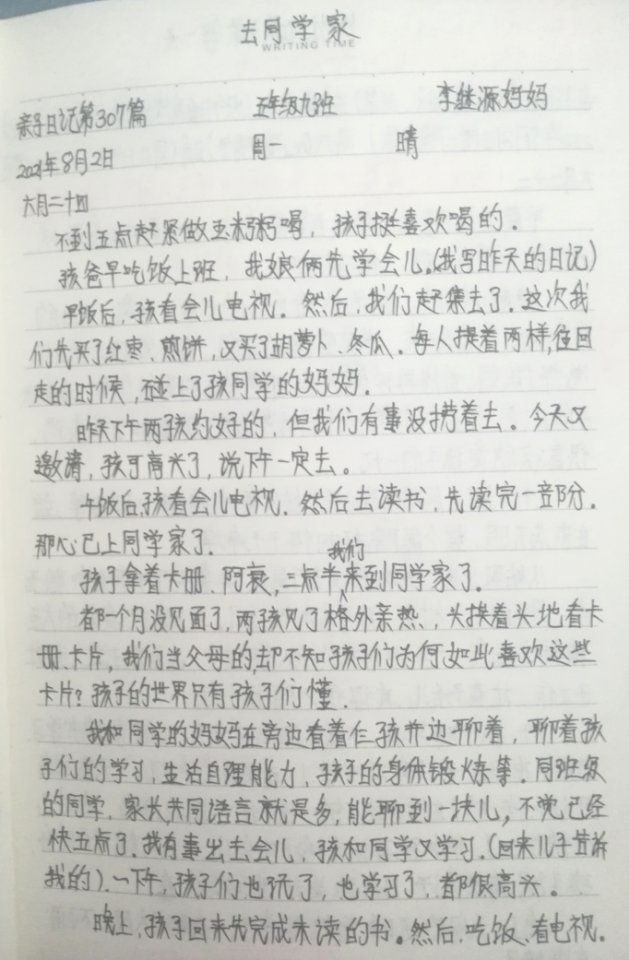 去同学家
WRITING TIME
亲子日记第307篇 五年级九班 李继源妈妈
2021年8月2日 周一 晴
六月二十四
不到五点赶紧做玉米粥喝，孩子挺喜欢喝的。
孩爸早吃饭上班，我娘俩先学会儿。(我写昨天的日记)
早饭后，孩看会儿电视．然后，我们赶集去了．这次我
们先买了红枣、煎饼，又买了胡萝卜、冬瓜．每人提着两样，往回
走的时候，碰上了孩同学的妈妈．
昨天下午两孩约好的，但我们有事没捞着去．今天又
邀请，孩可高兴了，说下午一定去。
午饭后，孩看会儿电视．然后去读书，先读完一部分．
那心已上同学家了．
孩子拿着卡册、阿衰，三点半我们来到同学家了．
都一个月没见面了，两孩见了格外亲热，头挨着头地看卡
册、卡片，我们当父母的，却不知孩子们为何如此喜欢这些
卡片？孩子的世界只有孩子们懂．
我和同学的妈妈在旁边看着仨孩并边聊着，聊着孩
子们的学习，生活自理能力，孩子的身体锻炼等．同班级
的同学，家长共同语言就是多，能聊到一块儿，不觉已经
快五点了．我有事出去会儿，孩和同学又学习．(回来儿子告诉
我的)．一下午，孩子们也玩了，也学习了，都很高兴．
晚上，孩子回来先完成未读的书。然后．吃饭、看电视．